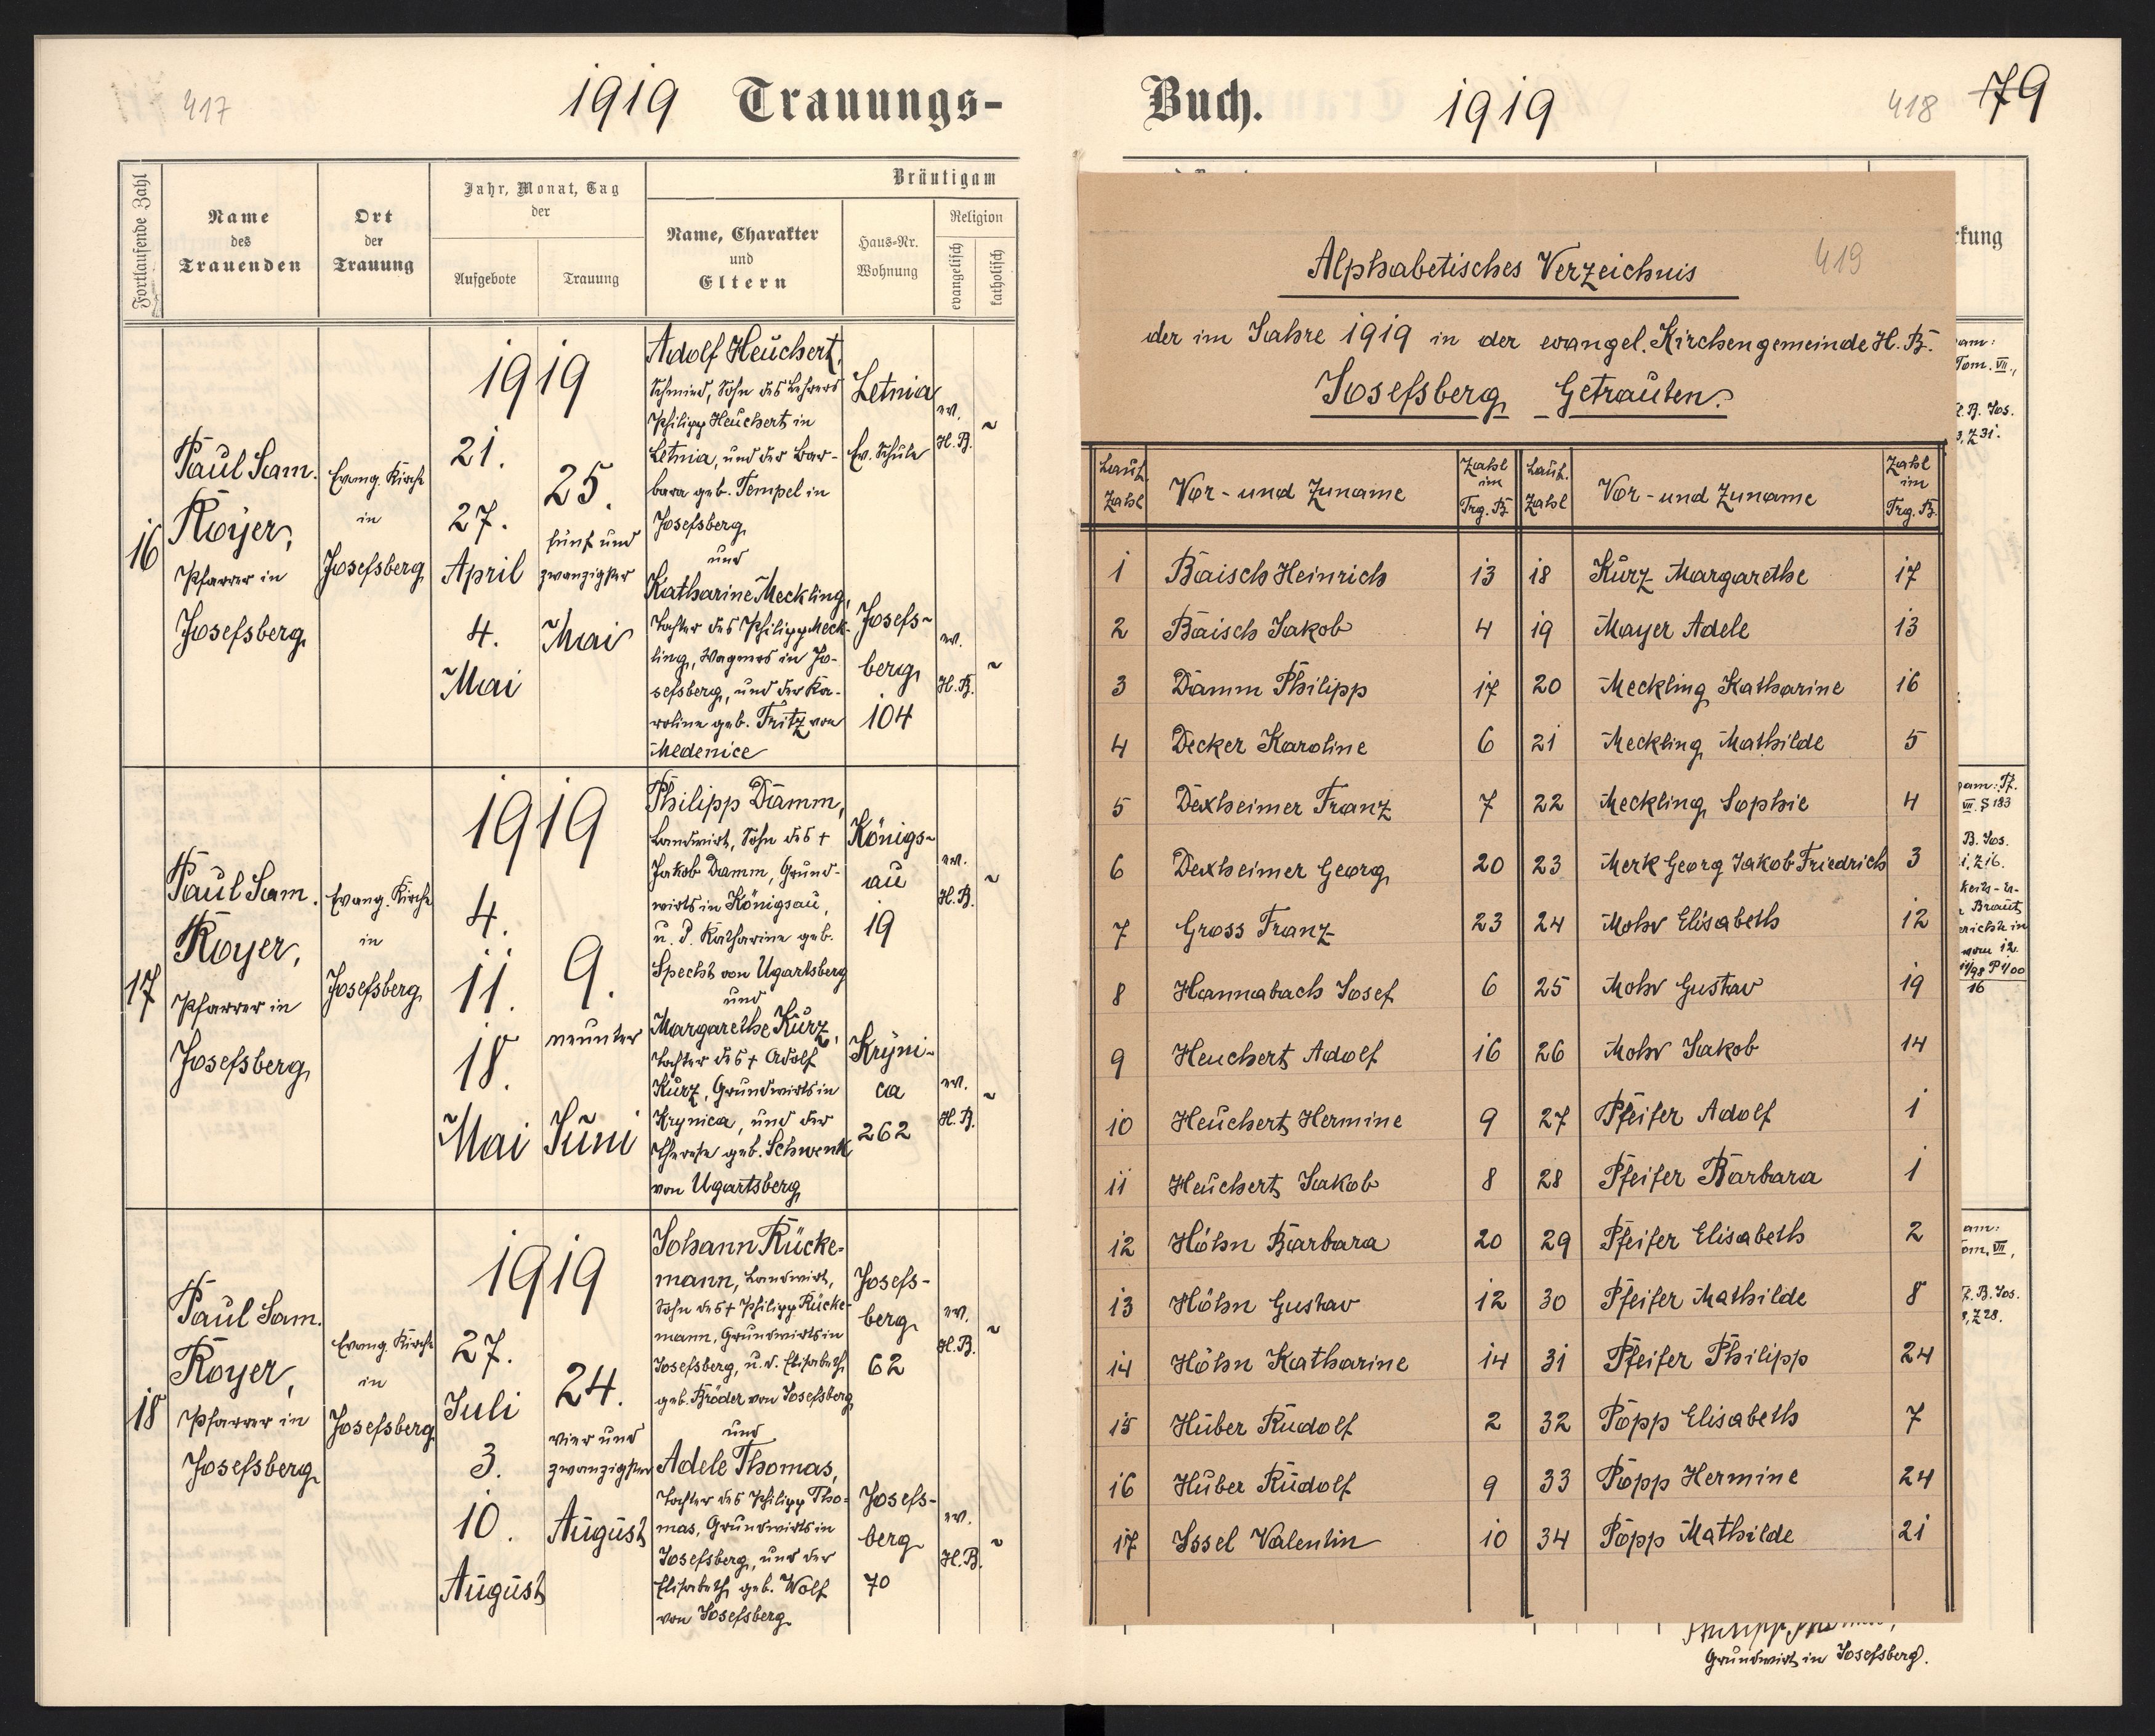 417
1919 Trauungs-
Fortlaufende Zahl
Name
des
Trauenden
Ort
der
Trauung
Jahr, Monat, Tag
der
Aufgebote
Trauung
Bräutigam
Name, Charakter
und
Eltern
Haus-Nr.
Wohnung
Religion
evangelisch
katholisch
16
Paul Sam.
Royer,
Pfarrer in
Josefsberg
Evang. Kirche
in
Josefsberg
1919
21.
27.
April
4.
Mai
25.
fünf und
zwanzigster
Mai
Adolf Heuchert,
Schmied, Sohn des Lehrers
Philipp Heuchert in
Letnia, und der Bar-
bara geb. Tempel in
Josefsberg
und
Katharine Meckling,
Tochter des Philipp Meck-
ling, Wagners in Jo-
sefsberg, und der Ka-
roline geb. Fritz von
Medenice
Letnia
Ev. Schule
Josefs-
berg
104
ev.
H.B.
~
ev.
H.B.
~
17
Paul Sam.
Royer,
Pfarrer in
Josefsberg
Evang. Kirche
in
Josefsberg
1919
4.
11.
18.
Mai
9.
neunter
Juni
Philipp Damm,
Landwirt, Sohn des +
Jakob Damm, Grund-
wirts in Königsau,
u. d. Katharine geb.
Specht von Ugartsberg
und
Margarethe Kurz,
Tochter des + Adolf
Kurz, Grundwirts in
Krynica, und der
Therese geb. Schwenk
von Ugartsberg
Königs-
au
19
Kryni-
ca
262
ev.
H.B.
~
ev.
H.B.
~
18
Paul Sam.
Royer,
Pfarrer in
Josefsberg
Evang. Kirche
in
Josefsberg
1919
27.
Juli
3.
10.
August
24.
vier und
zwanzigster
August
Johann Rücke-
mann, Landwirt,
Sohn des + Philipp Rücke-
mann, Grundwirts in
Josefsberg, u. d. Elisabeth
geb. Bröder von Josefsberg
und
Adele Thomas,
Tochter des Philipp Tho-
mas, Grundwirts in
Josefsberg, und der
Elisabeth geb. Wolf
von Josefsberg
Josefs-
berg
62
Josefs-
berg
70
ev.
H.B.
~
ev.
H.B.
~
Buch. 1919
418 79
419
Alphabetisches Verzeichnis
der im Jahre 1919 in der evangel. Kirchengemeinde H. B.
Josefsberg Getrauten.
Lauf. Zahl Vor- und Zuname Zahl im Trg. B. Lauf. Zahl Vor- und Zuname Zahl im Trg. B.
1 Baisch Heinrich 13 18 Kurz Margarethe 17
2 Baisch Jakob 4 19 Mayer Adele 13
3 Damm Philipp 17 20 Meckling Katharine 16
4 Decker Karoline 6 21 Meckling Mathilde 5
5 Dexheimer Franz 7 22 Meckling Sophie 4
6 Dexheimer Georg 20 23 Merk Georg Jakob Friedrich 3
7 Gross Franz 23 24 Mohr Elisabeth 12
8 Hannabach Josef 6 25 Mohr Gustav 19
9 Heuchert Adolf 16 26 Mohr Jakob 14
10 Heuchert Hermine 9 27 Pfeifer Adolf 1
11 Heuchert Jakob 8 28 Pfeifer Barbara 1
12 Höhn Barbara 20 29 Pfeifer Elisabeth 2
13 Höhn Gustav 12 30 Pfeifer Mathilde 8
14 Höhn Katharine 14 31 Pfeifer Philipp 24
15 Huber Rudolf 2 32 Popp Elisabeth 7
16 Huber Rudolf 9 33 Popp Hermine 24
17 Issel Valentin 10 34 Popp Mathilde 21
rkung
am:
Tom. VII.,
B. Jos.
Z 31.
am: Tf.
VII. S 183
B. Jos.
Z 16.
Braut
vom 12.
16
am:
om. VII,
B. Jos.
Z 28.
Grundwirt in Josefsberg.